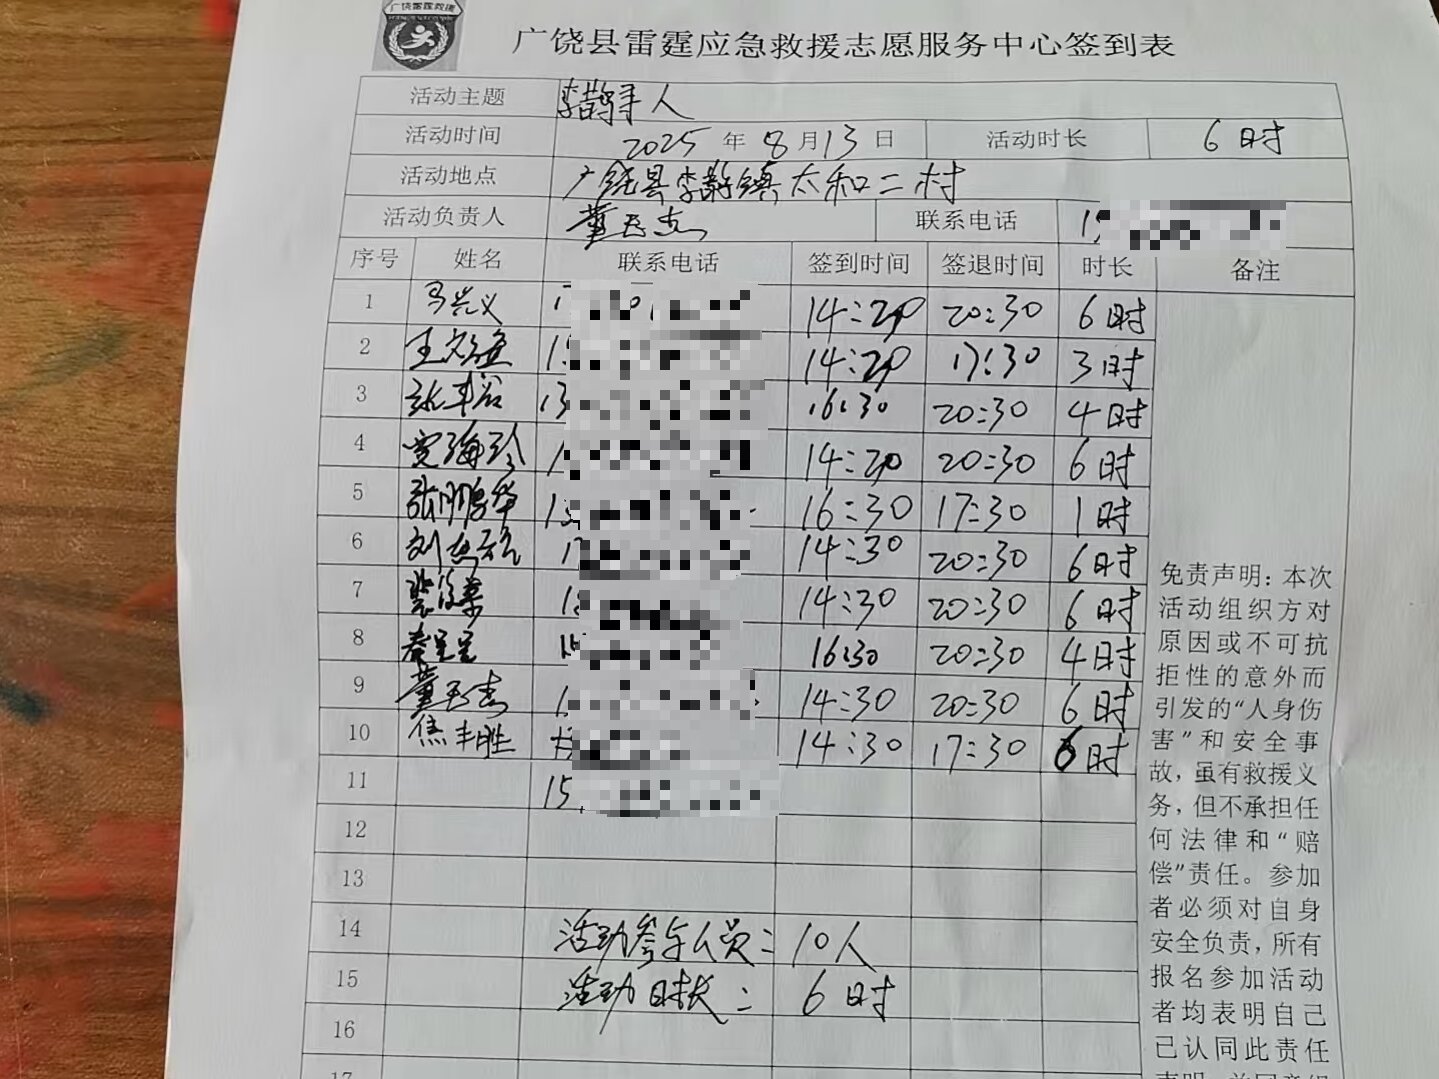 广饶雷霆救援
广饶县雷霆应急救援志愿服务中心签到表
活动主题 李鹊寻人
活动时间 2025年8月13日 活动时长 6时
活动地点 广饶县李鹊镇太和二村
活动负责人 董玉杰 联系电话
序号 姓名 联系电话 签到时间 签退时间 时长 备注
1 马兴义 14:20 20:30 6时
2 王 14:20 17:30 3时
3 张丰谷 13 16:30 20:30 4时
4 贾海玲 14:20 20:30 6时
5 张鹏华 16:30 17:30 1时
6 刘 14:30 20:30 6时
7 14:30 20:30 6时
8 秦呈呈 16:30 20:30 4时
9 董玉杰 14:30 20:30 6时
10 焦丰胜 14:30 17:30 6时
11 15
12
13
14 活动参与人员:10人
15 活动时长:6时
16
17
免责声明:本次
活动组织方对
原因或不可抗
拒性的意外而
引发的“人身伤
害”和安全事
故,虽有救援义
务,但不承担任
何法律和“赔
偿”责任。参加
者必须对自身
安全负责,所有
报名参加活动
者均表明自己
已认同此责任